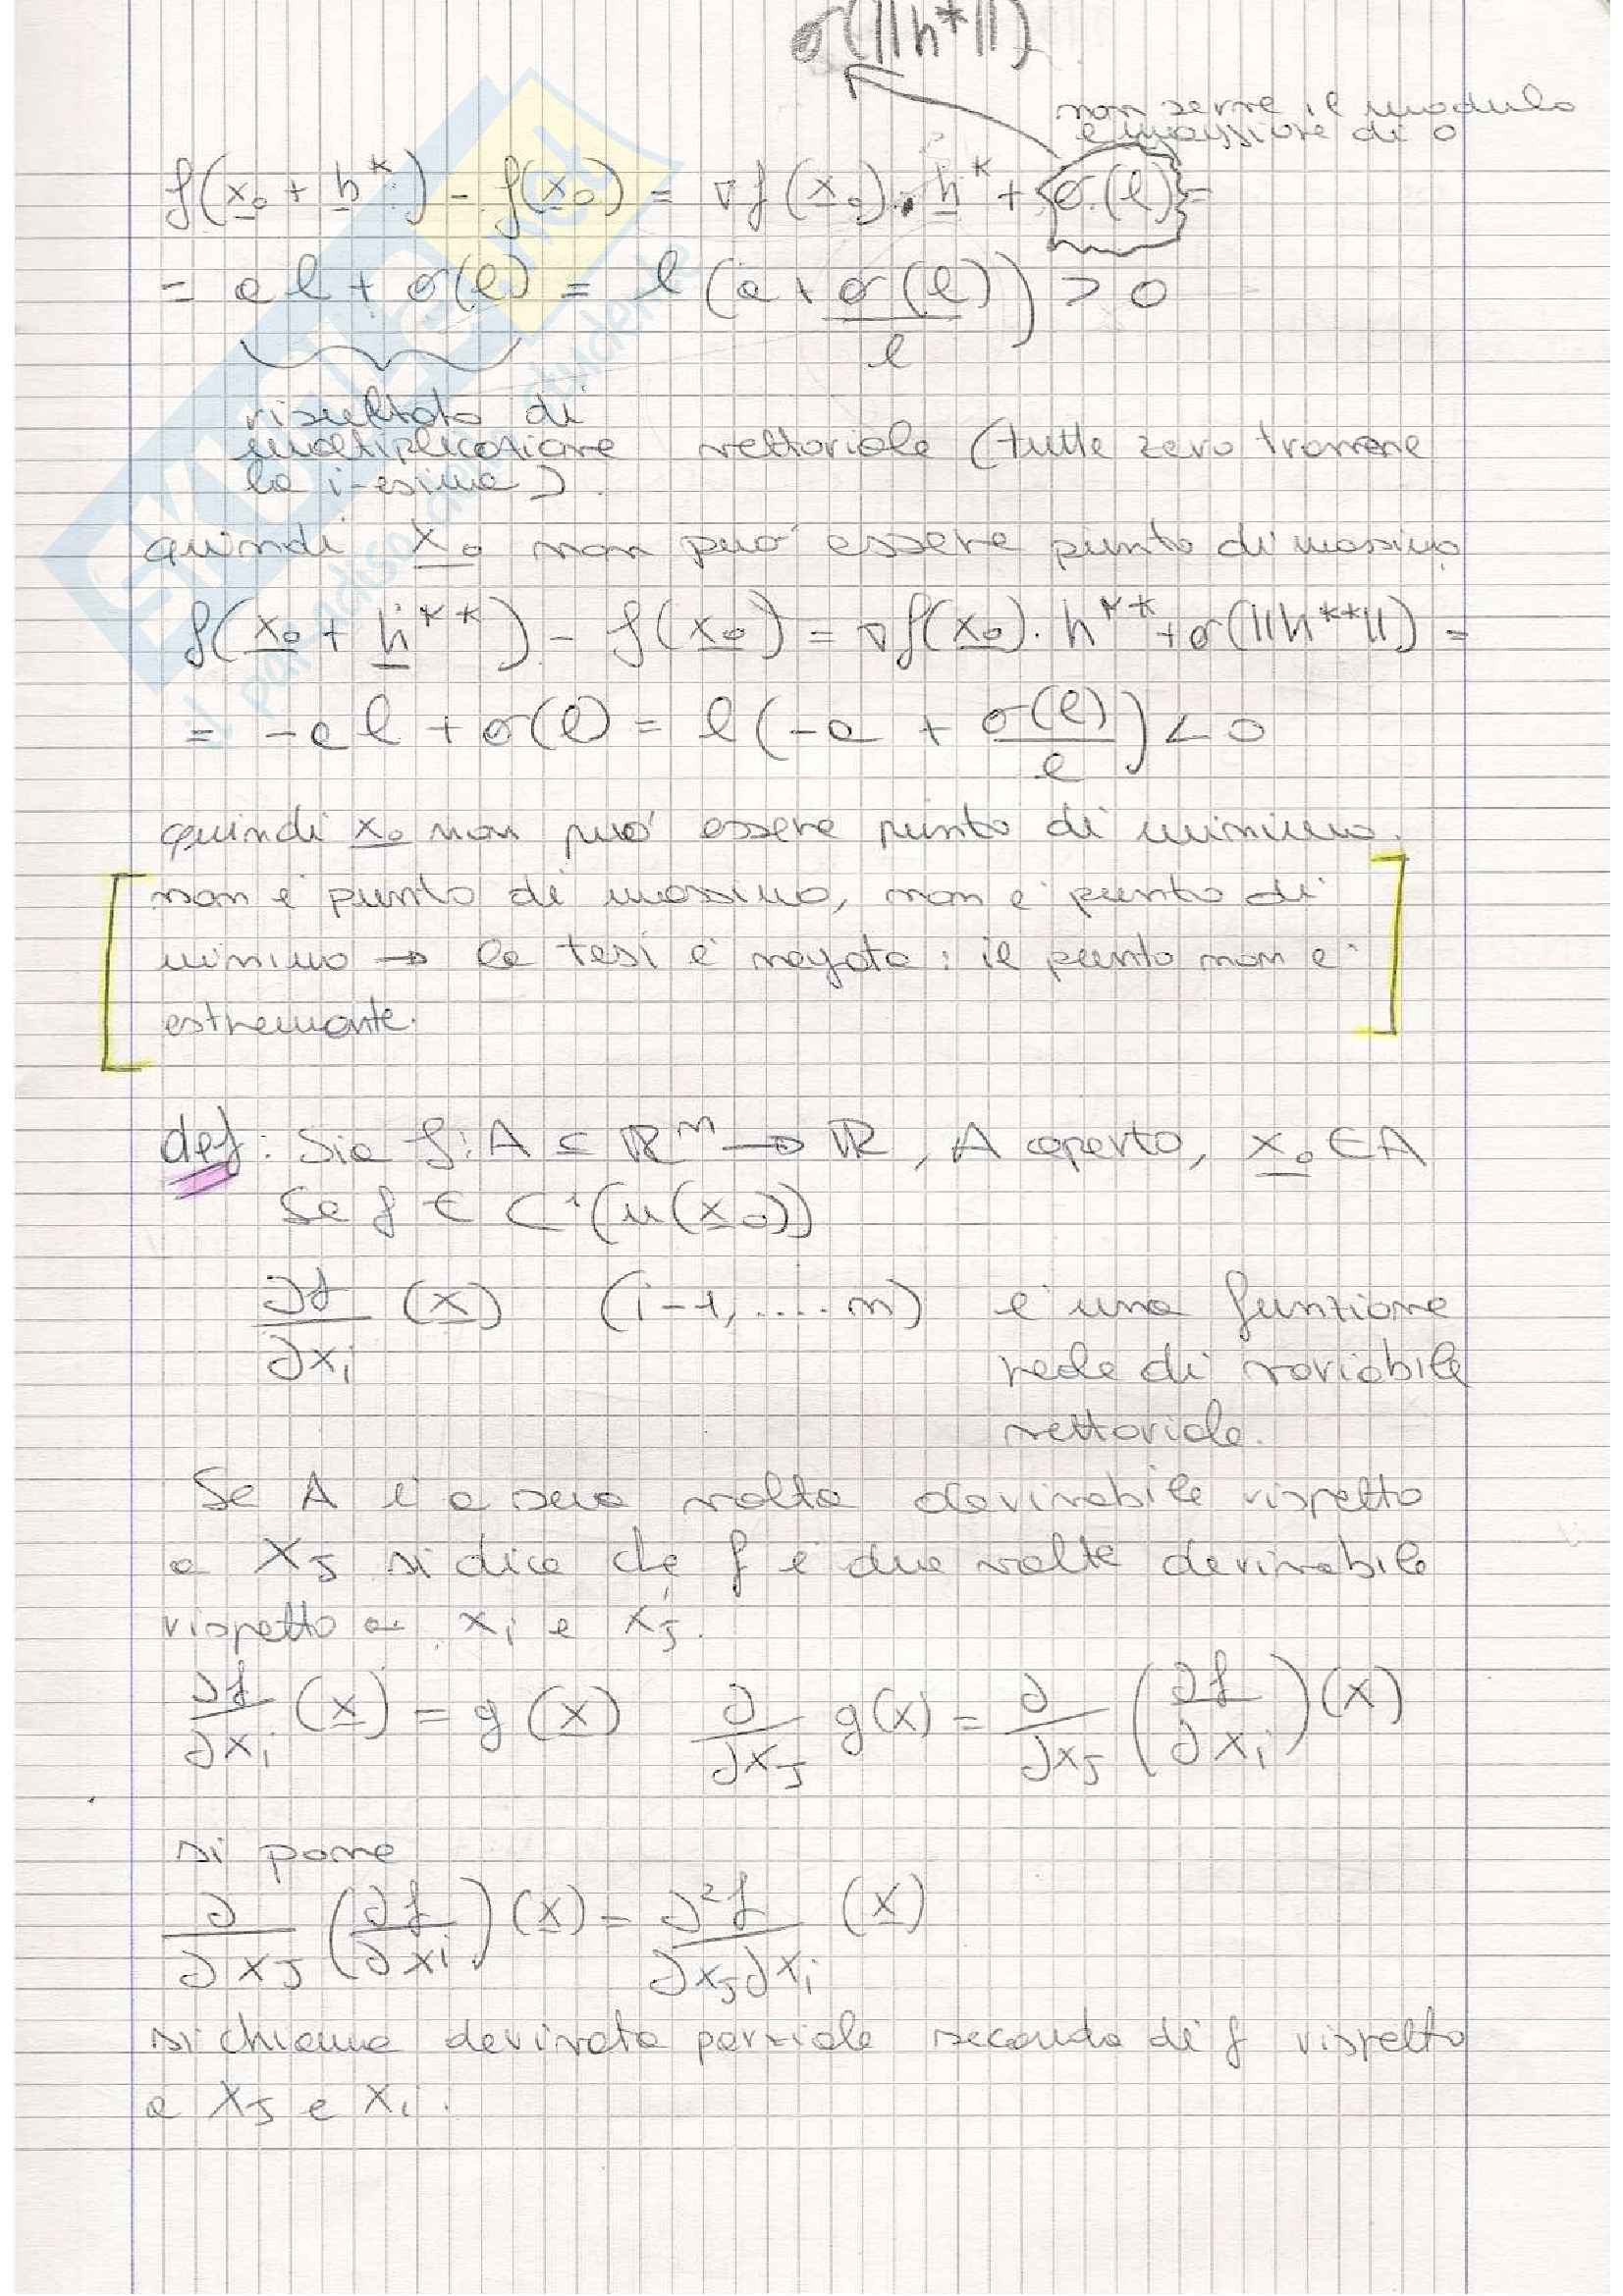 σ(||h*||)
non serve il modulo
è maggiore di 0
f(x₀ + h*) - f(x₀) = ∇f(x₀) · h* + σ(l) =
= al + σ(l) = l (a + σ(l)/l) > 0
risultato di
moltiplicazione vettoriale (tutte zero tranne
la i-esima)
quindi x₀ non può essere punto di massimo
f(x₀ + h**) - f(x₀) = ∇f(x₀) · h** + σ(||h**||) =
= -al + σ(l) = l (-a + σ(l)/l) < 0
quindi x₀ non può essere punto di minimo.
[non è punto di massimo, non è punto di
minimo → la tesi è negata: il punto non è
estremante.]
def: Sia f: A ⊆ ℝⁿ → ℝ, A aperto, x₀ ∈ A
Se f ∈ C¹(u(x₀))
∂f/∂xᵢ (x) (i-1, .... n) è una funzione
reale di variabile
vettoriale.
Se A è a sua volta derivabile rispetto
a xⱼ si dice che f è due volte derivabile
rispetto a xᵢ e xⱼ.
∂f/∂xᵢ (x) = g(x) ∂/∂xⱼ g(x) = ∂/∂xⱼ (∂f/∂xᵢ)(x)
si pone
∂/∂xⱼ (∂f/∂xᵢ)(x) = ∂²f/∂xⱼ∂xᵢ (x)
si chiama derivata parziale seconda di f rispetto
a xⱼ e xᵢ.